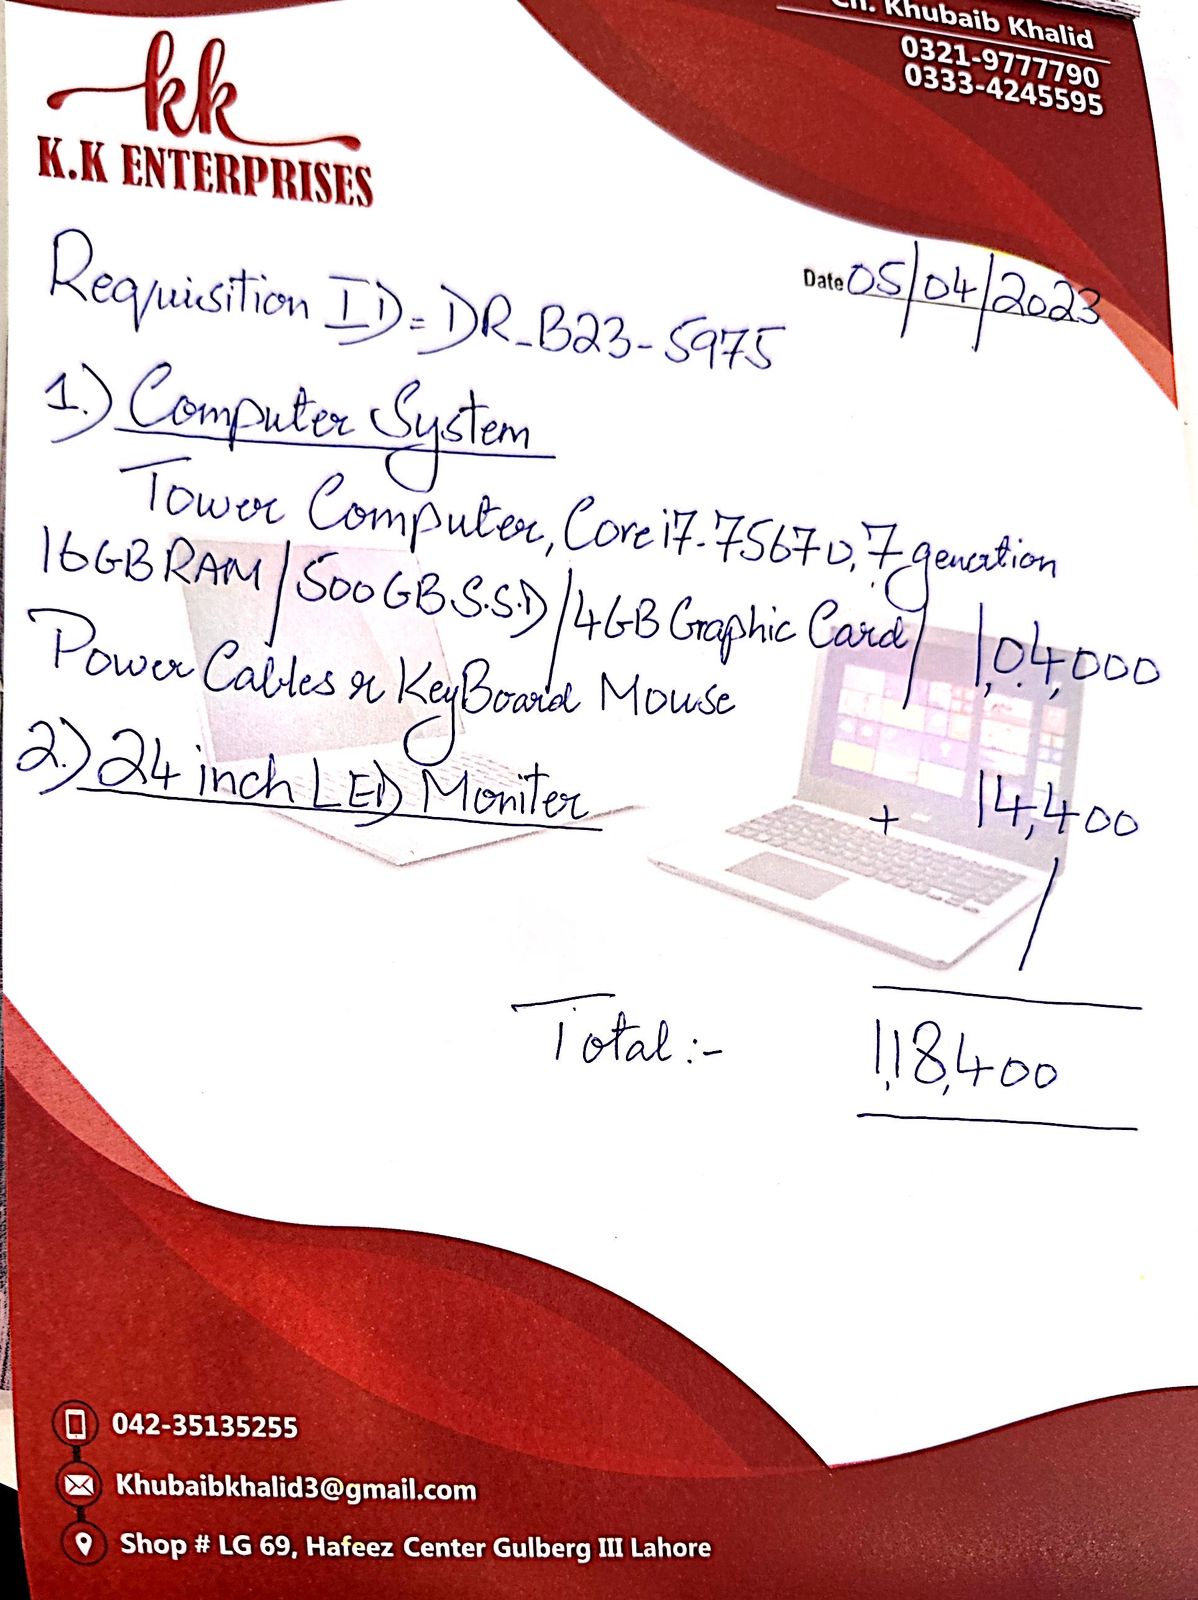 Ch. Khubaib Khalid
0321-9777790
0333-4245595
kk
K.K ENTERPRISES
Date 05/04/2023
Requisition ID = DR_B23-5975
1.) Computer System
Tower Computer, Core i7-7567U, 7 genration
16GB RAM / 500GB S.S.D / 4GB Graphic Card / 1,04,000
Power Cables & KeyBoard Mouse
2.) 24 inch LED Moniter + 14,400
Total :- 1,18,400
042-35135255
Khubaibkhalid3@gmail.com
Shop # LG 69, Hafeez Center Gulberg III Lahore